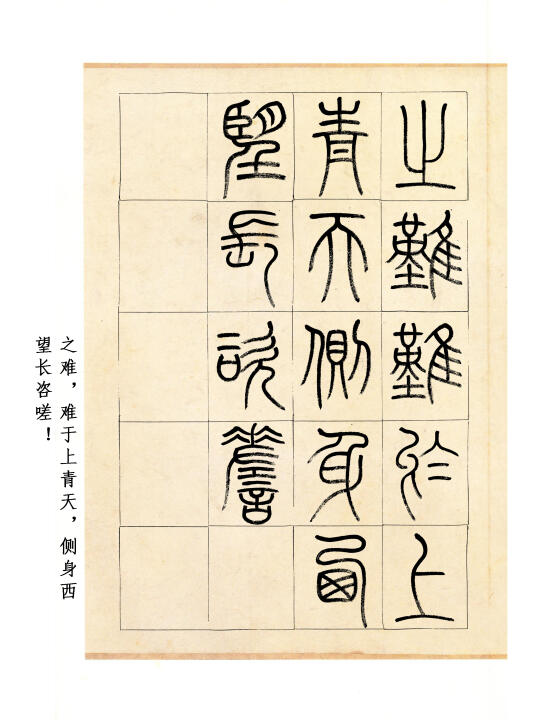 之難難於上
青天側身西
望長咨嗟
之难，难于上青天，侧身西
望长咨嗟！